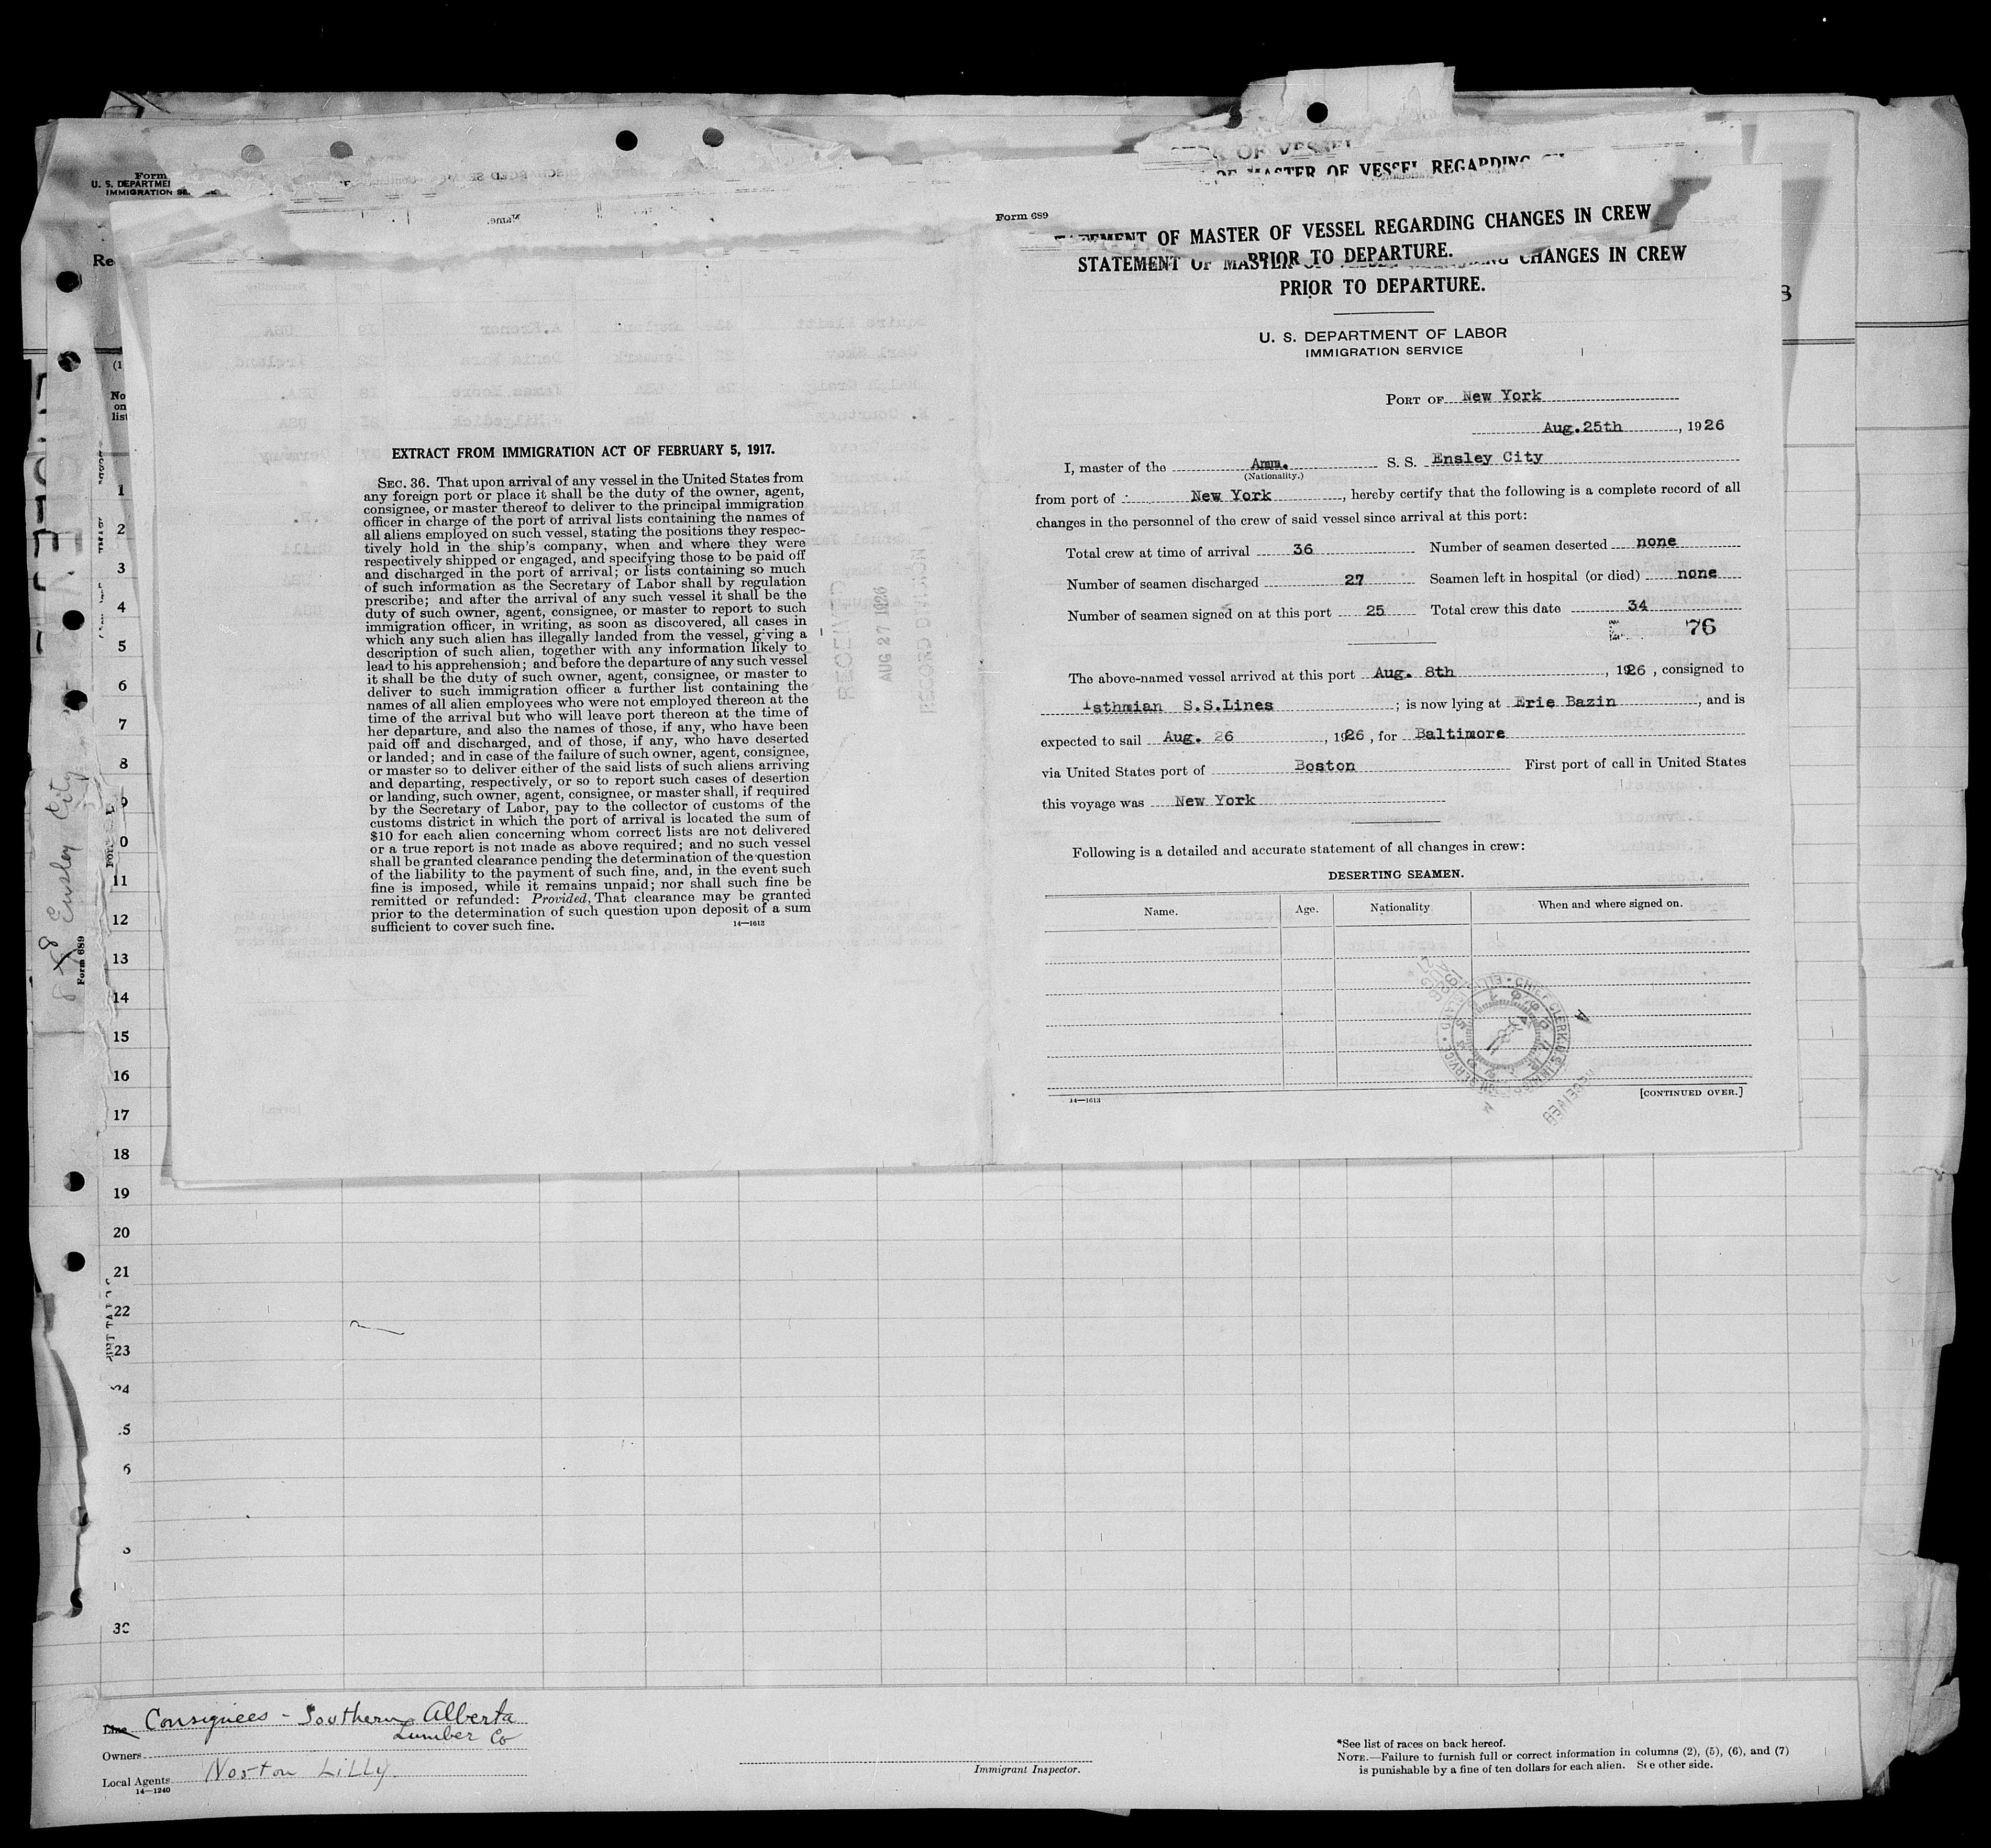 Form
U. S. DEPARTME
IMMIGRATION SE
Re
Name.
OF VESSEL
OF MASTER OF VESSEL REGARDING
Form 689
STATEMENT OF MASTER OF VESSEL REGARDING CHANGES IN CREW
PRIOR TO DEPARTURE.
STATEMENT OF MAS CHANGES IN CREW
PRIOR TO DEPARTURE.
U. S. DEPARTMENT OF LABOR
IMMIGRATION SERVICE
PORT OF New York
Aug.25th, 1926
I, master of the Amm. S. S. Ensley City
(Nationality.)
from port of New York, hereby certify that the following is a complete record of all
changes in the personnel of the crew of said vessel since arrival at this port:
Total crew at time of arrival 36 Number of seamen deserted none
Number of seamen discharged 27 Seamen left in hospital (or died) none
Number of seamen signed on at this port 25 Total crew this date 34
76
The above-named vessel arrived at this port Aug. 8th, 1926, consigned to
Isthmian S.S.Lines; is now lying at Erie Bazin, and is
expected to sail Aug. 26, 1926, for Baltimore
via United States port of Boston First port of call in United States
this voyage was New York
Following is a detailed and accurate statement of all changes in crew:
DESERTING SEAMEN.
Name. Age. Nationality When and where signed on.
14—1613
[CONTINUED OVER.]
EXTRACT FROM IMMIGRATION ACT OF FEBRUARY 5, 1917.
SEC. 36. That upon arrival of any vessel in the United States from
any foreign port or place it shall be the duty of the owner, agent,
consignee, or master thereof to deliver to the principal immigration
officer in charge of the port of arrival lists containing the names of
all aliens employed on such vessel, stating the positions they respec-
tively hold in the ship's company, when and where they were
respectively shipped or engaged, and specifying those to be paid off
and discharged in the port of arrival; or lists containing so much
of such information as the Secretary of Labor shall by regulation
prescribe; and after the arrival of any such vessel it shall be the
duty of such owner, agent, consignee, or master to report to such
immigration officer, in writing, as soon as discovered, all cases in
which any such alien has illegally landed from the vessel, giving a
description of such alien, together with any information likely to
lead to his apprehension; and before the departure of any such vessel
it shall be the duty of such owner, agent, consignee, or master to
deliver to such immigration officer a further list containing the
names of all alien employees who were not employed thereon at the
time of the arrival but who will leave port thereon at the time of
her departure, and also the names of those, if any, who have been
paid off and discharged, and of those, if any, who have deserted
or landed; and in case of the failure of such owner, agent, consignee,
or master so to deliver either of the said lists of such aliens arriving
and departing, respectively, or so to report such cases of desertion
or landing, such owner, agent, consignee, or master shall, if required
by the Secretary of Labor, pay to the collector of customs of the
customs district in which the port of arrival is located the sum of
$10 for each alien concerning whom correct lists are not delivered
or a true report is not made as above required; and no such vessel
shall be granted clearance pending the determination of the question
of the liability to the payment of such fine, and, in the event such
fine is imposed, while it remains unpaid; nor shall such fine be
remitted or refunded: Provided, That clearance may be granted
prior to the determination of such question upon deposit of a sum
sufficient to cover such fine.
14—1613
No
on
list
1
2
3
4
5
6
7
8
0
11
12
13
14
15
16
17
18
19
20
21
22
23
Ensley City
Form 689
Line Consignees - Southern Alberta
Lumber Co
Owners
Local Agents Norton Lilly
14—1240
Immigrant Inspector.
*See list of races on back hereof.
NOTE.—Failure to furnish full or correct information in columns (2), (5), (6), and (7)
is punishable by a fine of ten dollars for each alien. See other side.